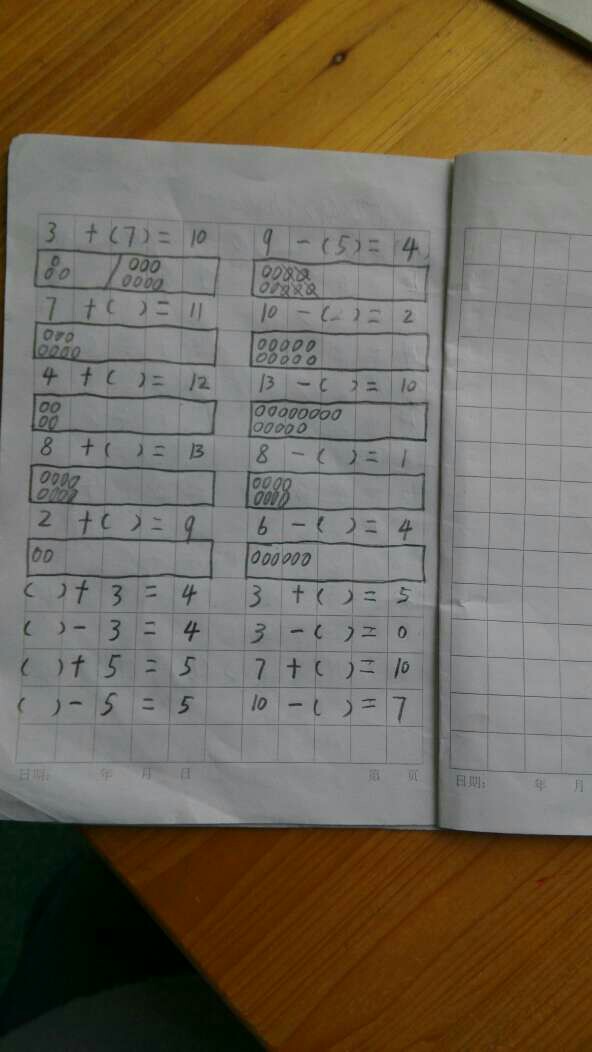 3 + (7) = 10 9 - (5) = 4
7 + ( ) = 11 10 - ( ) = 2
4 + ( ) = 12 13 - ( ) = 10
8 + ( ) = 13 8 - ( ) = 1
2 + ( ) = 9 6 - ( ) = 4
( ) + 3 = 4 3 + ( ) = 5
( ) - 3 = 4 3 - ( ) = 0
( ) + 5 = 5 7 + ( ) = 10
( ) - 5 = 5 10 - ( ) = 7
日期: 年 月 日 第 页
日期: 年 月